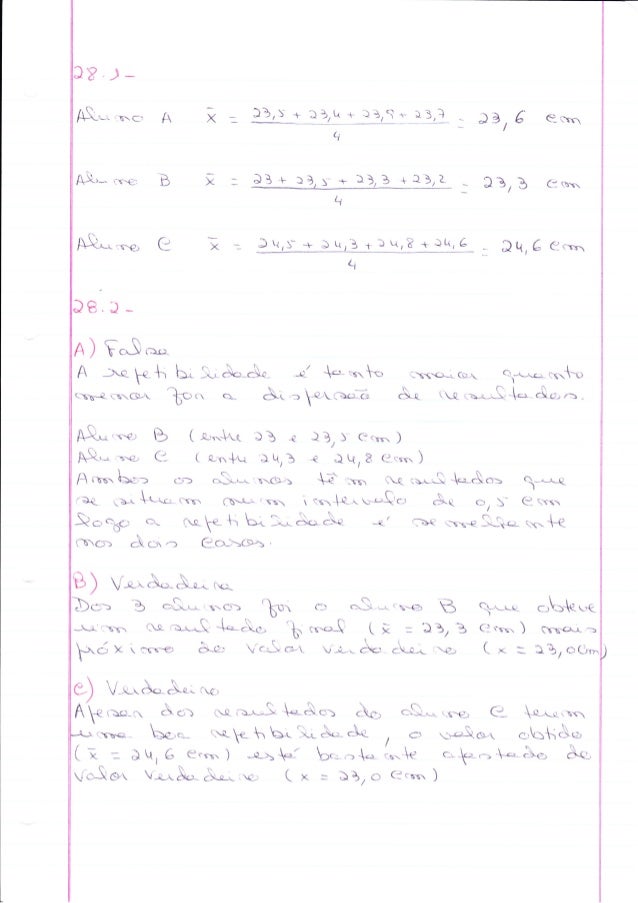 28.1-
Aluno A x̄ = 23,5 + 23,4 + 23,9 + 23,7 / 4 = 23,6 cm
Aluno B x̄ = 23 + 23,5 + 23,3 + 23,2 / 4 = 23,3 cm
Aluno C x̄ = 24,5 + 24,3 + 24,8 + 24,6 / 4 = 24,6 cm
28.2-
A) Falso
A repetibilidade é tanto maior quanto
menor for a dispersão de resultados.
Aluno B (entre 23 e 23,5 cm)
Aluno C (entre 24,3 e 24,8 cm)
Ambos os alunos têm resultados que
se situam num intervalo de 0,5 cm
logo a repetibilidade é semelhante
nos dois casos.
B) Verdadeira
Dos 3 alunos foi o aluno B que obteve
um resultado final (x̄ = 23,3 cm) mais
próximo ao valor verdadeiro (x = 23,0cm)
C) Verdadeiro
Apesar dos resultados do aluno C terem
uma boa repetibilidade, o valor obtido
(x̄ = 24,6 cm) está bastante afastado do
valor verdadeiro (x = 23,0 cm)